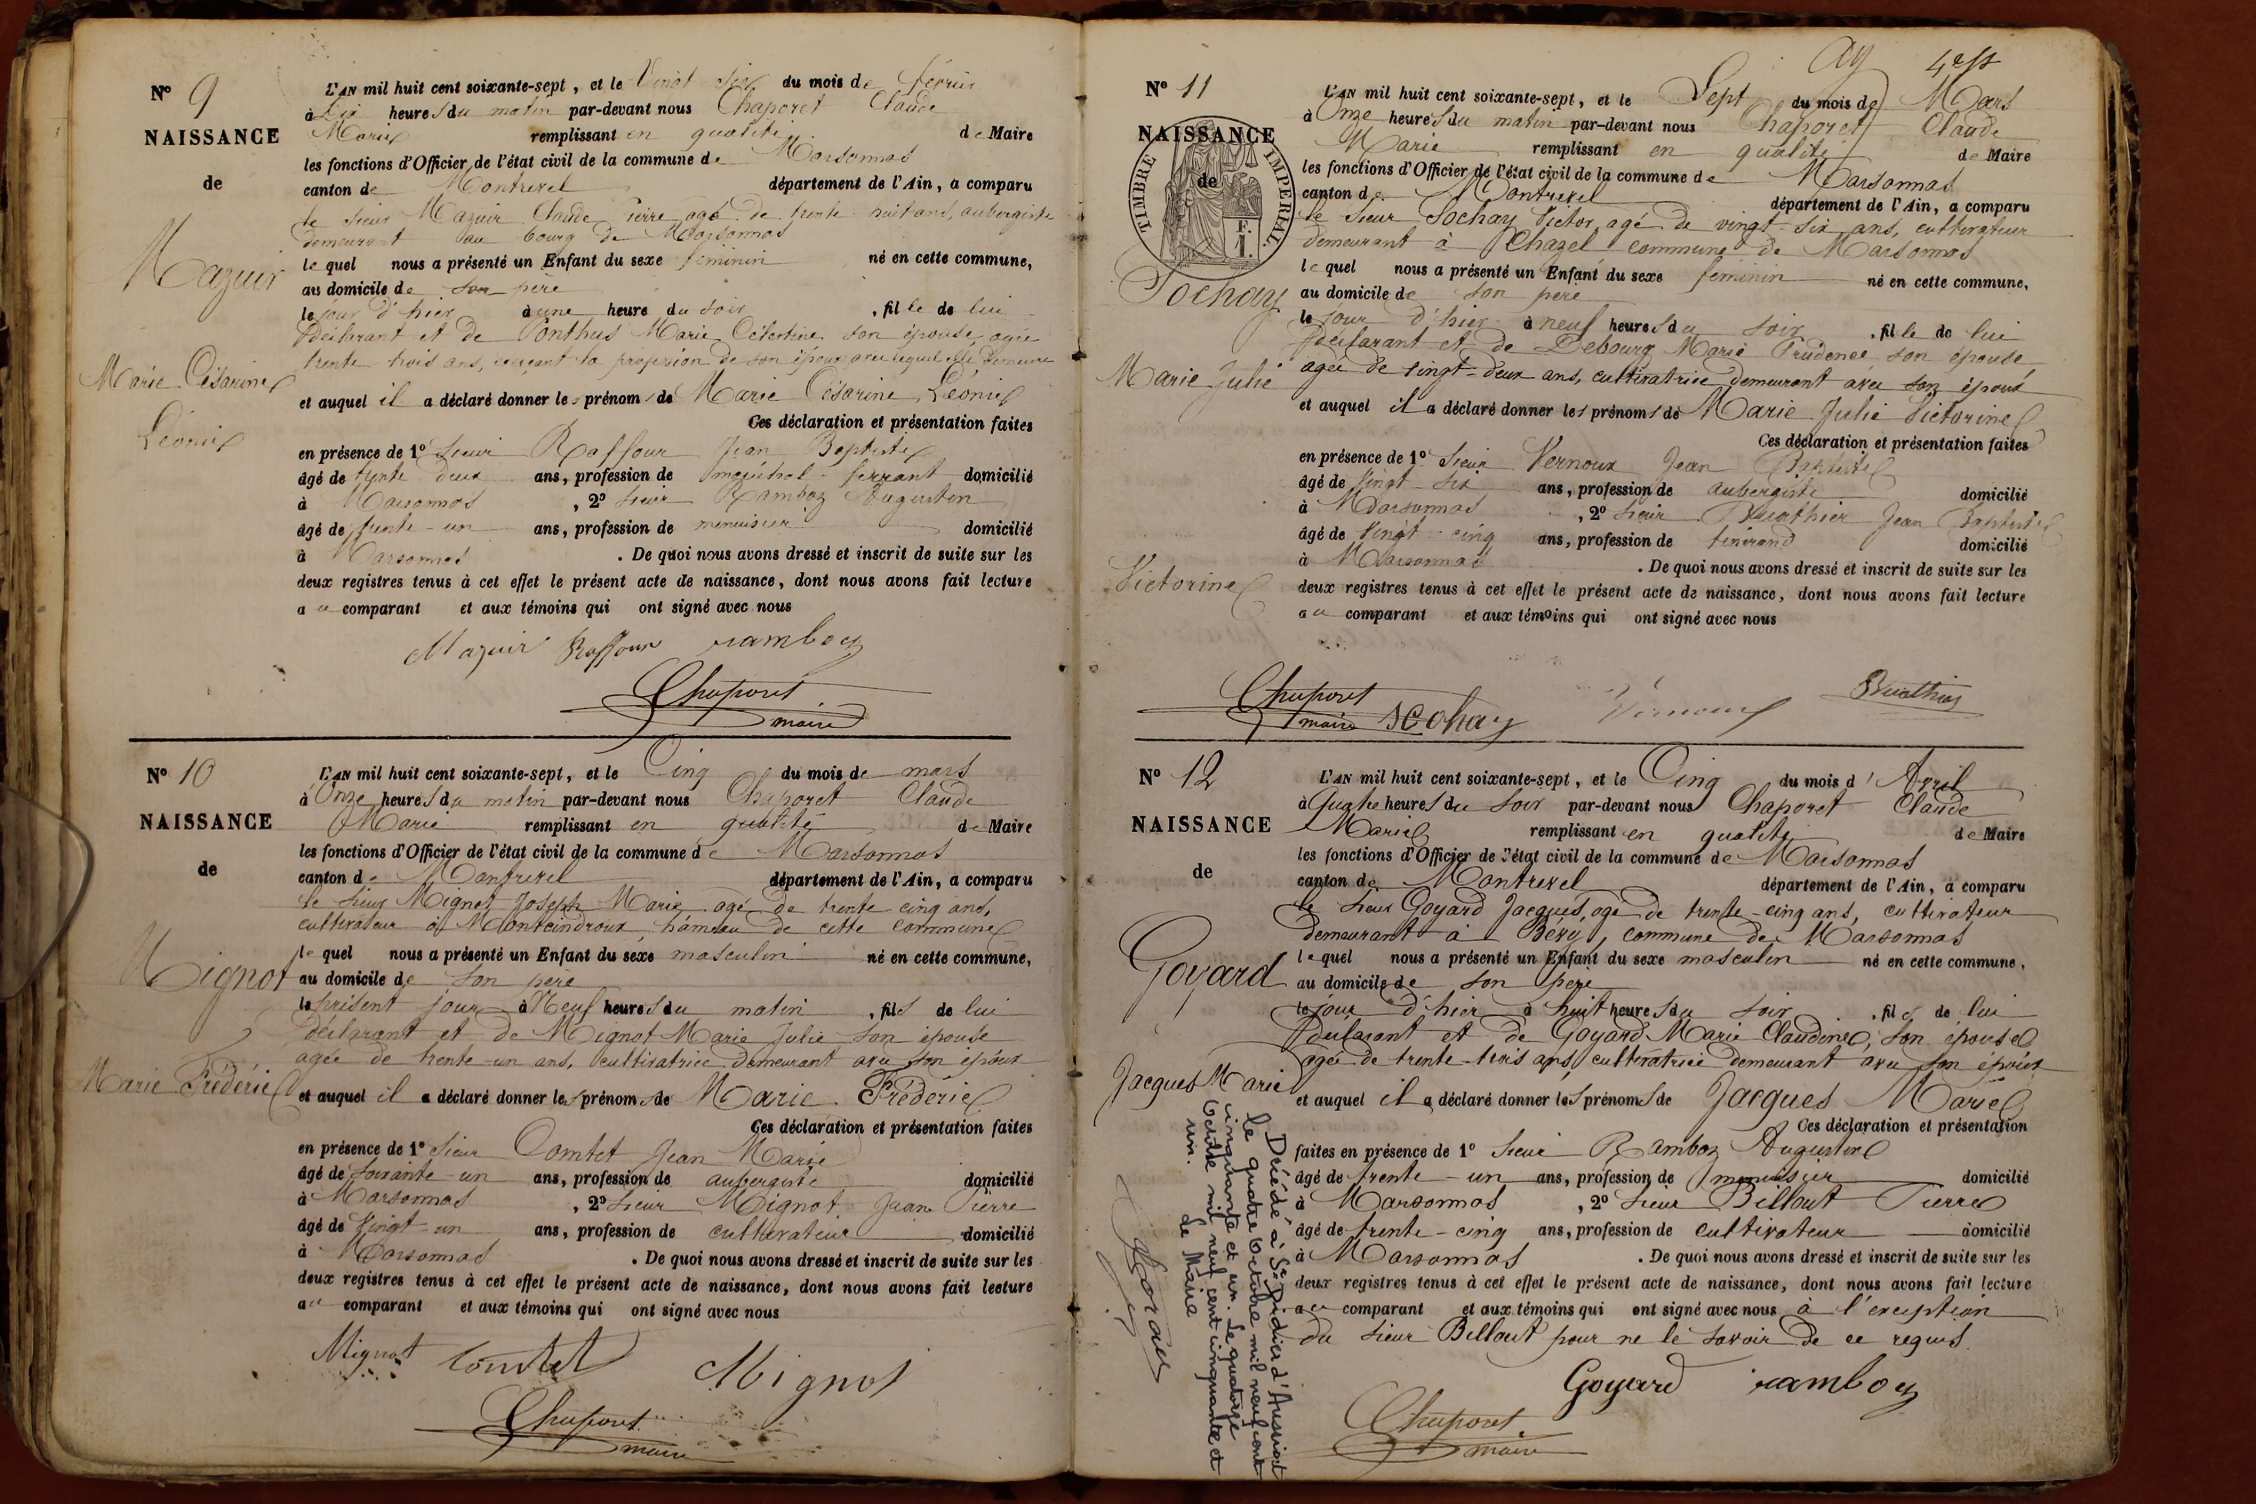 N° 9
NAISSANCE
de
Mazuir
Marie Césarine
Léonie
L'AN mil huit cent soixante-sept, et le Vingt six du mois de février
à Dix heures du matin par-devant nous Chaporet Claude
Marie remplissant en qualité de Maire
les fonctions d'Officier de l'état civil de la commune de Marsonnas
canton de Montrevel département de l'Ain, a comparu
le sieur Mazuir Claude Pierre agé de trente huit ans, aubergiste
demeurant au bourg de Marsonnas
lequel nous a présenté un Enfant du sexe féminin né en cette commune,
au domicile de son père
le jour d'hier à une heure du soir, fille de lui
déclarant et de Ponthus Marie Célestine son épouse, agée
trente trois ans, exerçant la profession de son époux avec lequel elle demeure
et auquel il a déclaré donner les prénoms de Marie Césarine Léonie
Ces déclaration et présentation faites
en présence de 1° sieur Raffour Jean Baptiste
âgé de trente deux ans, profession de maréchal-ferrant domicilié
à Marsonnas, 2° sieur Ramboz Augustin
âgé de trente-un ans, profession de menuisier domicilié
à Marsonnas. De quoi nous avons dressé et inscrit de suite sur les
deux registres tenus à cet effet le présent acte de naissance, dont nous avons fait lecture
au comparant et aux témoins qui ont signé avec nous
Mazuir Raffour ramboz
Chaporet
maire
N° 10
NAISSANCE
de
Mignot
Marie Frédéric
L'AN mil huit cent soixante-sept, et le Cinq du mois de mars
à Onze heures du matin par-devant nous Chaporet Claude
Marie remplissant en qualité de Maire
les fonctions d'Officier de l'état civil de la commune de Marsonnas
canton de Montrevel département de l'Ain, a comparu
le sieur Mignot Joseph Marie agé de trente cinq ans,
cultivateur à Montcindroux, hameau de cette commune
lequel nous a présenté un Enfant du sexe masculin né en cette commune,
au domicile de son père
le présent jour à Neuf heures du matin, fils de lui
déclarant et de Mignot Marie Julie son épouse
agée de trente-un ans, cultivatrice demeurant avec son époux
et auquel il a déclaré donner les prénoms de Marie Frédéric
Ces déclaration et présentation faites
en présence de 1° sieur Comtet Jean Marie
âgé de soixante-un ans, profession de aubergiste domicilié
à Marsonnas, 2° sieur Mignot Jean Pierre
âgé de Vingt-un ans, profession de cultivateur domicilié
à Marsonnas. De quoi nous avons dressé et inscrit de suite sur les
deux registres tenus à cet effet le présent acte de naissance, dont nous avons fait lecture
au comparant et aux témoins qui ont signé avec nous
Mignot Comtet Mignot
Chaporet
maire
N° 11
NAISSANCE
de
TIMBRE IMPÉRIAL
F.
1.
Sochay
Marie Julie
Victorine
L'AN mil huit cent soixante-sept, et le Sept du mois de Mars
à Onze heures du matin par-devant nous Chaporet Claude
Marie remplissant en qualité de Maire
les fonctions d'Officier de l'état civil de la commune de Marsonnas
canton de Montrevel département de l'Ain, a comparu
le sieur Sochay Victor, agé de vingt-six ans, cultivateur
demeurant à Chazel commune de Marsonnas
lequel nous a présenté un Enfant du sexe féminin né en cette commune,
au domicile de son père
le jour d'hier à neuf heures du soir, fille de lui
déclarant et de Debourg Marie Prudence son épouse,
agée de vingt-deux ans, cultivatrice demeurant avec son époux
et auquel il a déclaré donner les prénoms de Marie Julie Victorine
Ces déclaration et présentation faites
en présence de 1° sieur Vernoux Jean Baptiste
âgé de Vingt-six ans, profession de aubergiste domicilié
à Marsonnas, 2° sieur Buathier Jean Baptiste
âgé de Vingt-cinq ans, profession de domicilié
à Marsonnas. De quoi nous avons dressé et inscrit de suite sur les
deux registres tenus à cet effet le présent acte de naissance, dont nous avons fait lecture
au comparant et aux témoins qui ont signé avec nous
Chaporet
maire Scohay Vernoux Buathier
N° 12
NAISSANCE
de
Goyard
Jacques Marie
L'AN mil huit cent soixante-sept, et le Cinq du mois d'Avril
à Quatre heures du soir par-devant nous Chaporet Claude
Marie remplissant en qualité de Maire
les fonctions d'Officier de l'état civil de la commune de Marsonnas
canton de Montrevel département de l'Ain, a comparu
le sieur Goyard Jacques, agé de trente-cinq ans, cultivateur
demeurant à Béry, commune de Marsonnas
lequel nous a présenté un Enfant du sexe masculin né en cette commune,
au domicile de son père
le jour d'hier à huit heures du soir, fils de lui
déclarant et de Goyard Marie Claudine, son épouse
agée de trente-trois ans, cultivatrice demeurant avec son époux
et auquel il a déclaré donner les prénoms de Jacques Marie
Ces déclaration et présentation
faites en présence de 1° sieur Ramboz Augustin
âgé de trente-un ans, profession de menuisier domicilié
à Marsonnas, 2° sieur Billout Pierre
âgé de trente-cinq ans, profession de cultivateur domicilié
à Marsonnas. De quoi nous avons dressé et inscrit de suite sur les
deux registres tenus à cet effet le présent acte de naissance, dont nous avons fait lecture
au comparant et aux témoins qui ont signé avec nous à l'exception
du sieur Billout pour ne le savoir de ce requis.
Goyard ramboz
Chaporet
maire
Décédé à St Didier d'Aussiat
le quatre octobre mil neuf cent
cinquante et un. Le quatorze
octobre mil neuf cent cinquante et
un.
Le Maire